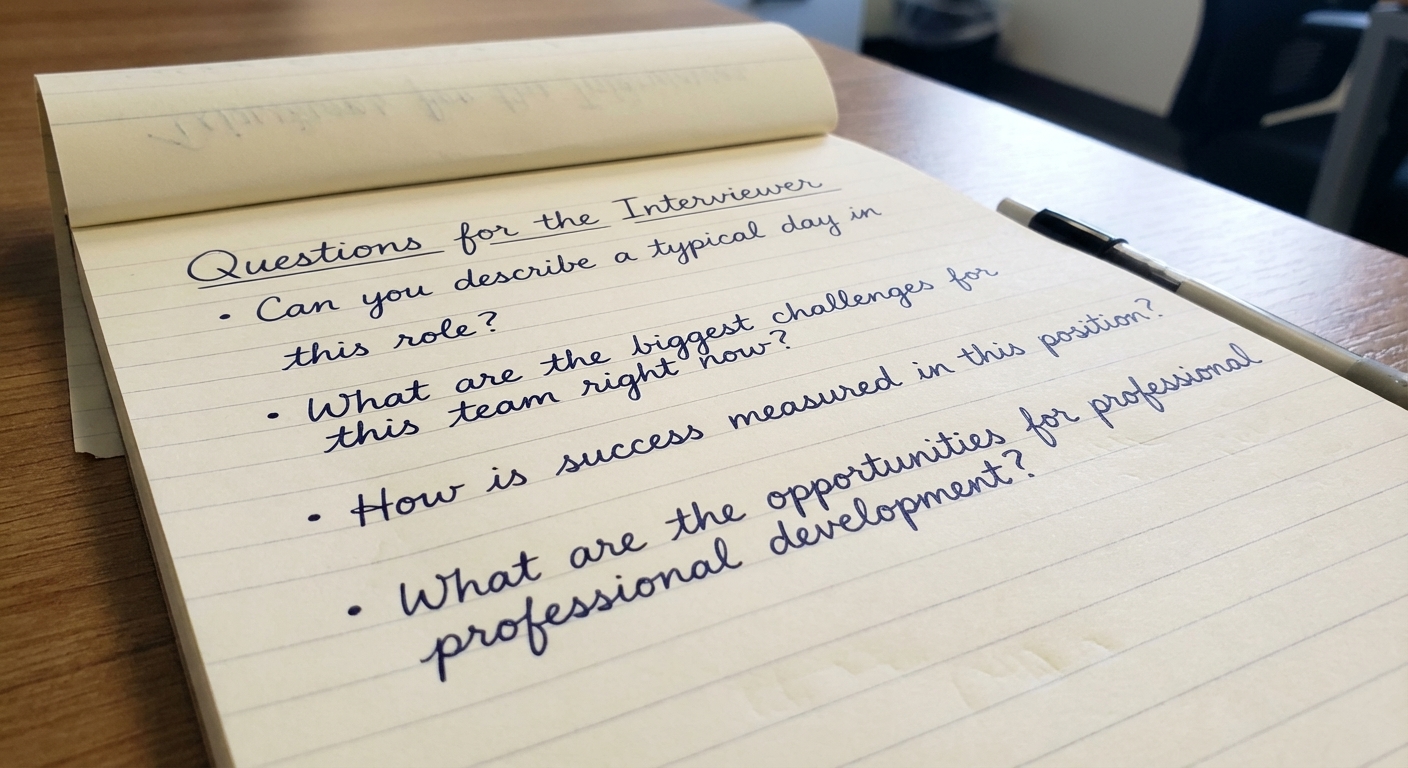 Questions for the Interviewer
• Can you describe a typical day in
this role?
• What are the biggest challenges for
this team right now?
• How is success measured in this position?
• What are the opportunities for professional
professional development?